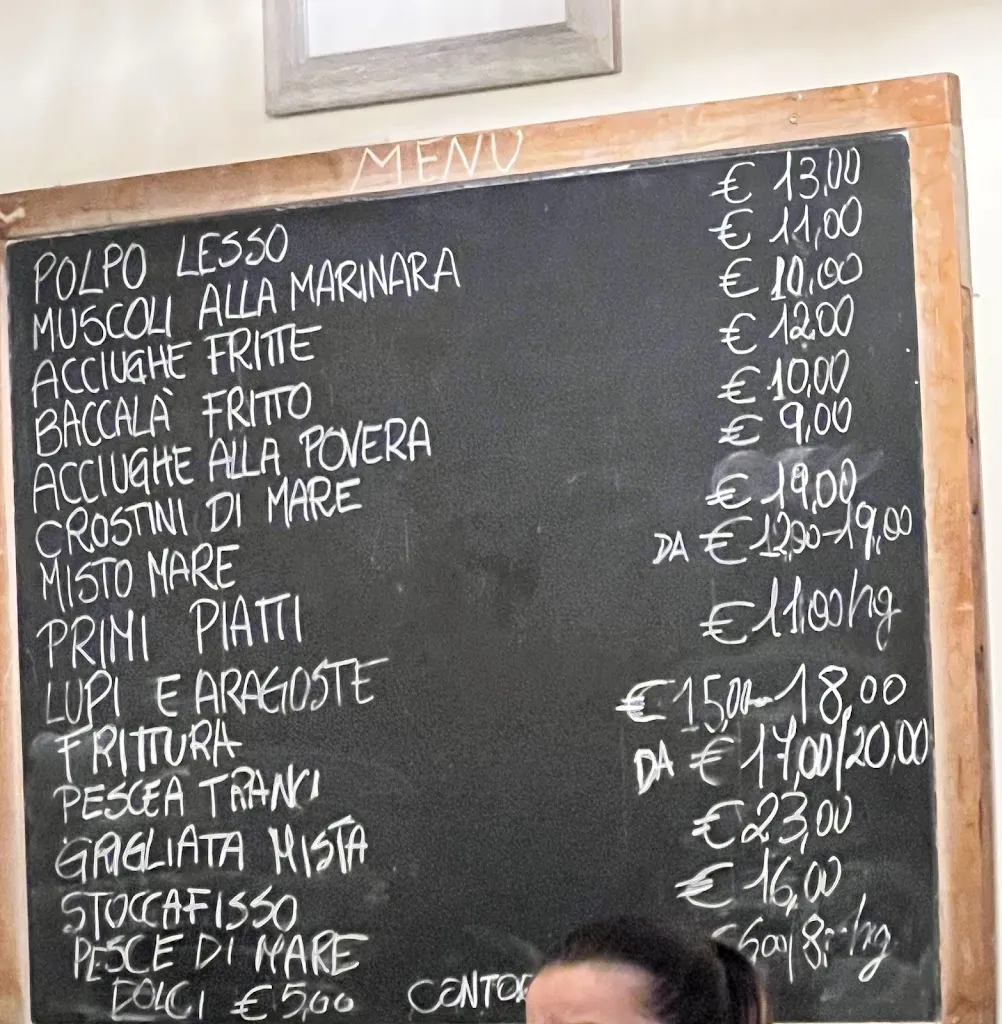 MENU
POLPO LESSO € 13,00
MUSCOLI ALLA MARINARA € 11,00
ACCIUGHE FRITTE € 10,00
BACCALÀ FRITTO € 12,00
ACCIUGHE ALLA POVERA € 10,00
CROSTINI DI MARE € 9,00
MISTO MARE € 19,00
PRIMI PIATTI DA € 12,00-19,00
LUPI E ARAGOSTE € 11,00 hg
FRITTURA € 15,00-18,00
PESCE A TRANCI DA € 17,00/20,00
GRIGLIATA MISTA € 23,00
STOCCAFISSO € 16,00
PESCE DI MARE hg
DOLCI € 5,00